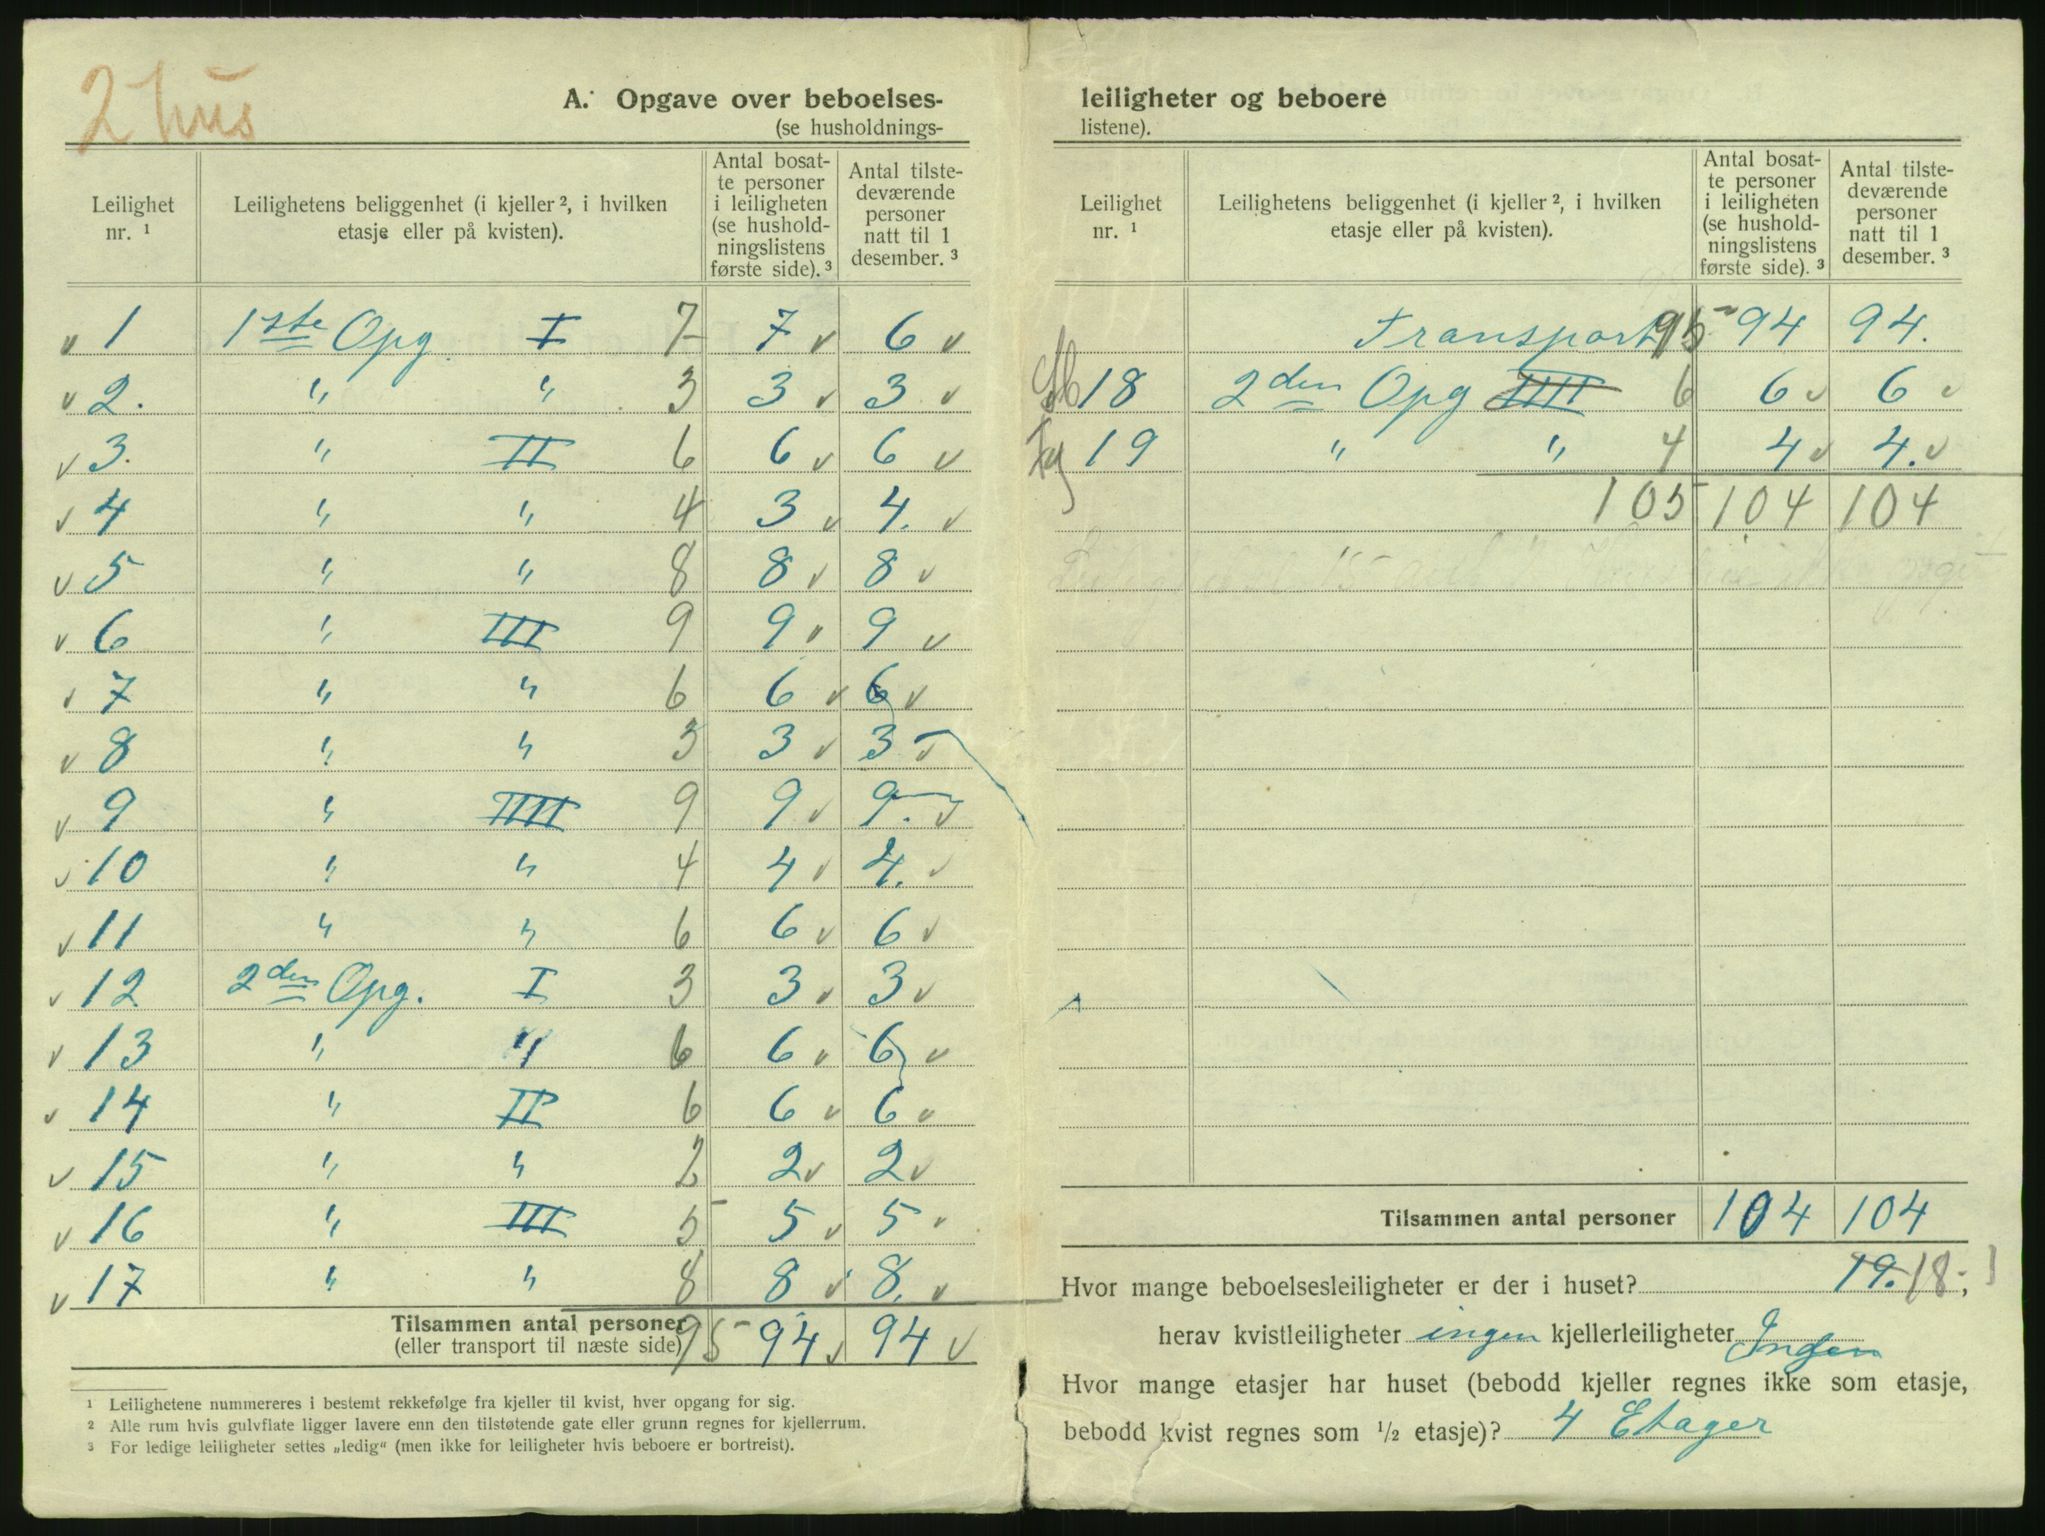 2 hus
A. Opgave over beboelses-
(se husholdnings-
Leilighet nr. ¹
Leilighetens beliggenhet (i kjeller ², i hvilken etasje eller på kvisten).
Antal bosatte personer i leiligheten (se husholdningslistens første side). ³
Antal tilstedeværende personer natt til 1 desember. ³
v 1 1ste Opg. I 7 7 v 6 v
v 2. " " 3 3 v 3 v
v 3. " II 6 6 v 6 v
v 4 " " 4 3 v 4. v
v 5 " " 8 8 v 8 v
v 6 " III 9 9 v 9 v
v 7 " " 6 6 v 6 v
v 8 " " 3 3 v 3 v
v 9 " IIII 9 9 v 9. v
v 10 " " 4 4 v 4. v
v 11 " " 6 6 v 6 v
v 12 2den Opg. I 3 3 v 3 v
v 13 " " 6 6 v 6 v
v 14 " II 6 6 v 6 v
v 15 " " 2 2 v 2 v
v 16 " III 5 5 v 5 v
v 17 " " 8 8 v 8. v
Tilsammen antal personer 95 94 v 94 v
(eller transport til næste side)
¹ Leilighetene nummereres i bestemt rekkefølge fra kjeller til kvist, hver opgang for sig.
² Alle rum hvis gulvflate ligger lavere enn den tilstøtende gate eller grunn regnes for kjellerrum.
³ For ledige leiligheter settes „ledig“ (men ikke for leiligheter hvis beboere er bortreist).
leiligheter og beboere
listene).
Leilighet nr. ¹
Leilighetens beliggenhet (i kjeller ², i hvilken etasje eller på kvisten).
Antal bosatte personer i leiligheten (se husholdningslistens første side). ³
Antal tilstedeværende personer natt til 1 desember. ³
Transport 95 94 94.
18 2den Opg IIII 6 6 v 6 v
19 " " 4 4 v 4. v
105 104 104
Tilsammen antal personer 104 104
Hvor mange beboelsesleiligheter er der i huset? 19. 18;
herav kvistleiligheter ingen kjellerleiligheter Ingen
Hvor mange etasjer har huset (bebodd kjeller regnes ikke som etasje,
bebodd kvist regnes som ½ etasje)? 4 Etager